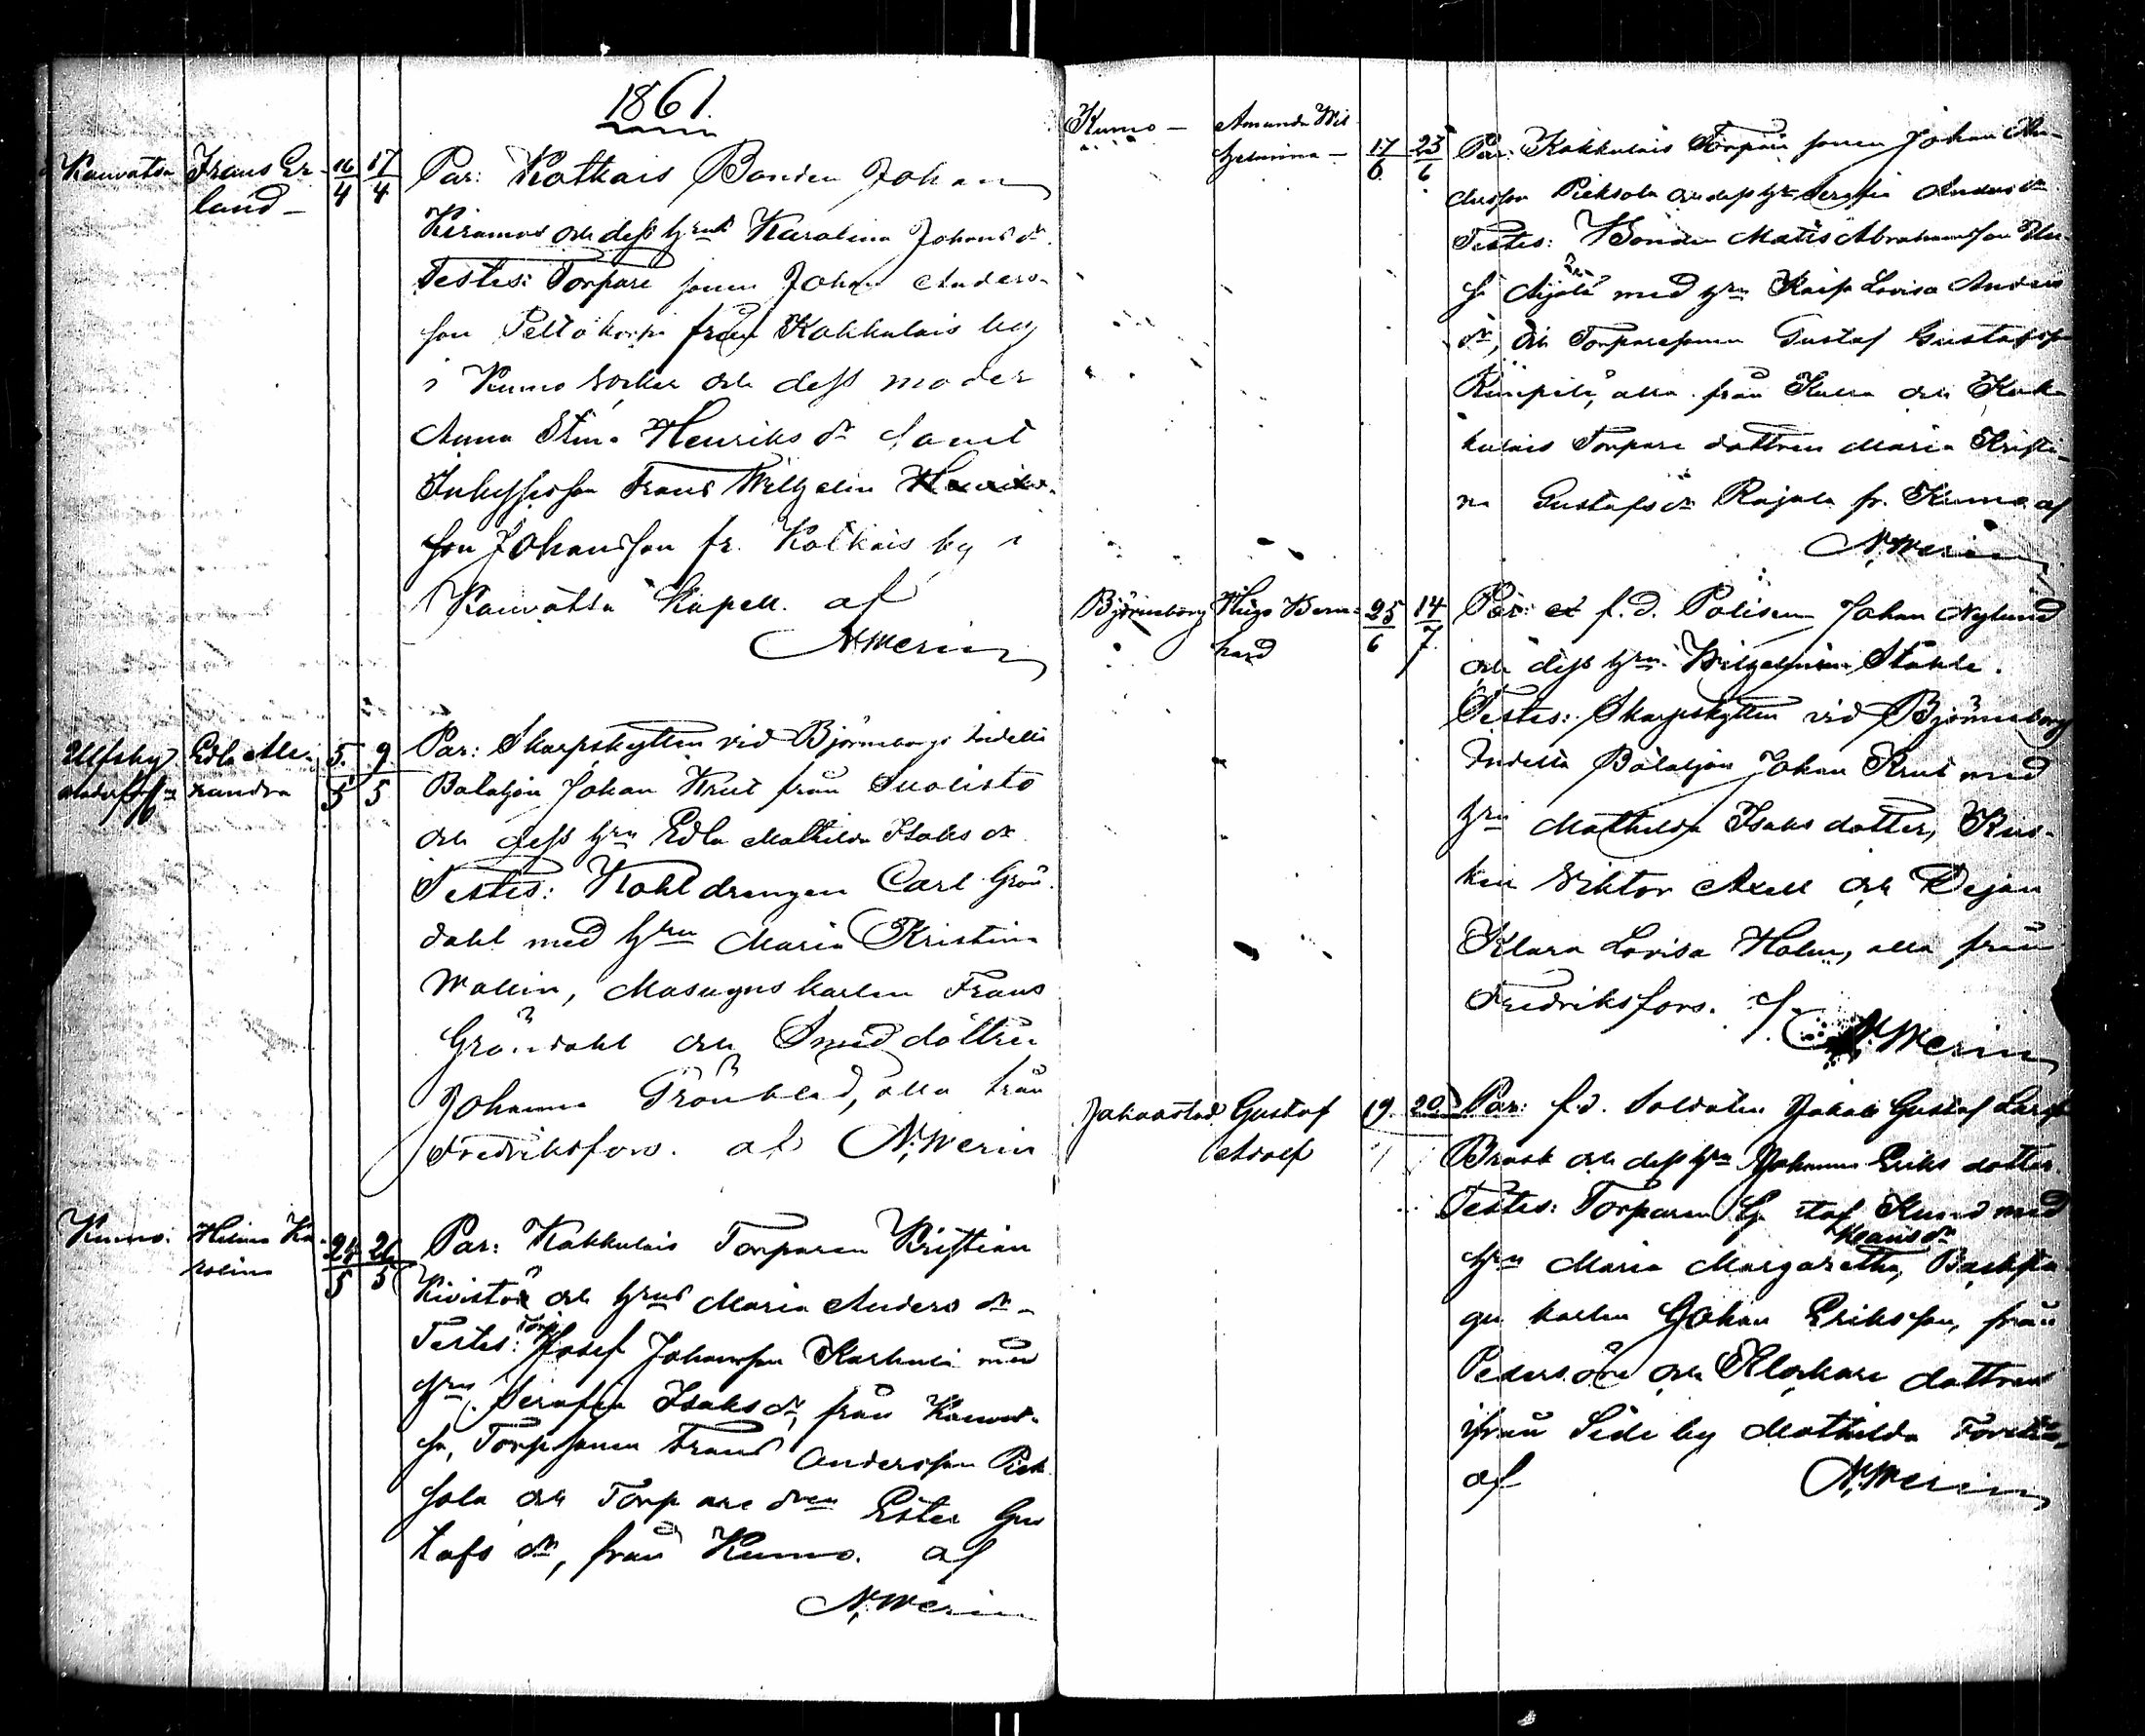 1861.
Kauvatsa Frans Er-
land - 16/4 17/4
Par: Kotkais Bonden Johan
Keramus och dess hru Karolina Johans dr.
Testes: Torpare sonen Johan Anders-
son Peltokorpi från Kakkulais by
i Kumo Socken och dess moder
Anna Stina Henriks dr samt
Frans Wilhelm
son Johansson fr. Kotkais by i
Kauvatsa Kapell. af
N. Werin
Ulfsby Edla Ale-
xandra 5/5 9/5
Par: Skarpskytten vid Björneborgs Indelta
Bataljon Johan Krut från Suolisto
och dess hru Edla Mathilda Isaks dr
Testes: Kohldrengen Carl Grön-
dahl med hru Maria Kristina
Wallin, Masugnskarlen Frans
Gröndahl och Smeddottren
Johanna Grönblad, alla från
Fredriksfors. af N. Werin
Kumo. Helena Ka-
rolina 24/5 26/5
Par: Kakkulais Torparen Kristian
Kivistö och hrus Maria Anders dr.
Testes: Torp. Josef Johansson Karhula med
hru Serafia Isaks dr, från Kauvat-
sa, Torp sonen Frans Andersson Piek-
sola och Torpare dren Ester Gus
tafs dr, från Kumo. af
N. Werin
Kumo - Amanda Wil-
helmina - 17/6 25/6
Par: Kakkulais Torpare sonen Johan An-
dersson Pieksola och dess hru Serafia Anders dr
Testes: Bonden Matts Abrahamsson
Äijälä med hru Kaisa Lovisa Anders
dr, och Torparesonen Gustaf Gustafsson
alla från och Kak-
kulais Torpare dottren Maria Kristi-
na Gustafs dr Rajala fr. Kumo af
N. Werin
Björneborg Hugo Bern-
hard 25/6 14/7
Par: f.d. Polisen Johan Nylund
och dess hru. Wilhelmina Ståhle.
Testes: Skarpskytten vid Björneborg
Indelta Bataljon Johan Krut med
hru Mathilda Isaks dotter, Kus-
ken Viktor Axell och Pejan
Klara Lovisa Holm, alla från
Fredriksfors. af
N. Werin
Jakobstad Gustaf
Adolf 19 20
Par: f.d. Soldaten Jakob Gustaf Larss
Brask och dess hru Johanna Eriks dotter.
Testes: Torparen Gustaf Kund med
Klaus dr
hru Maria Margaretha, Backstu-
gu karlen Johan Eriksson, från
Pedersöre och Klockare dottren
ifrån Sideby Mathilda
af N. Werin